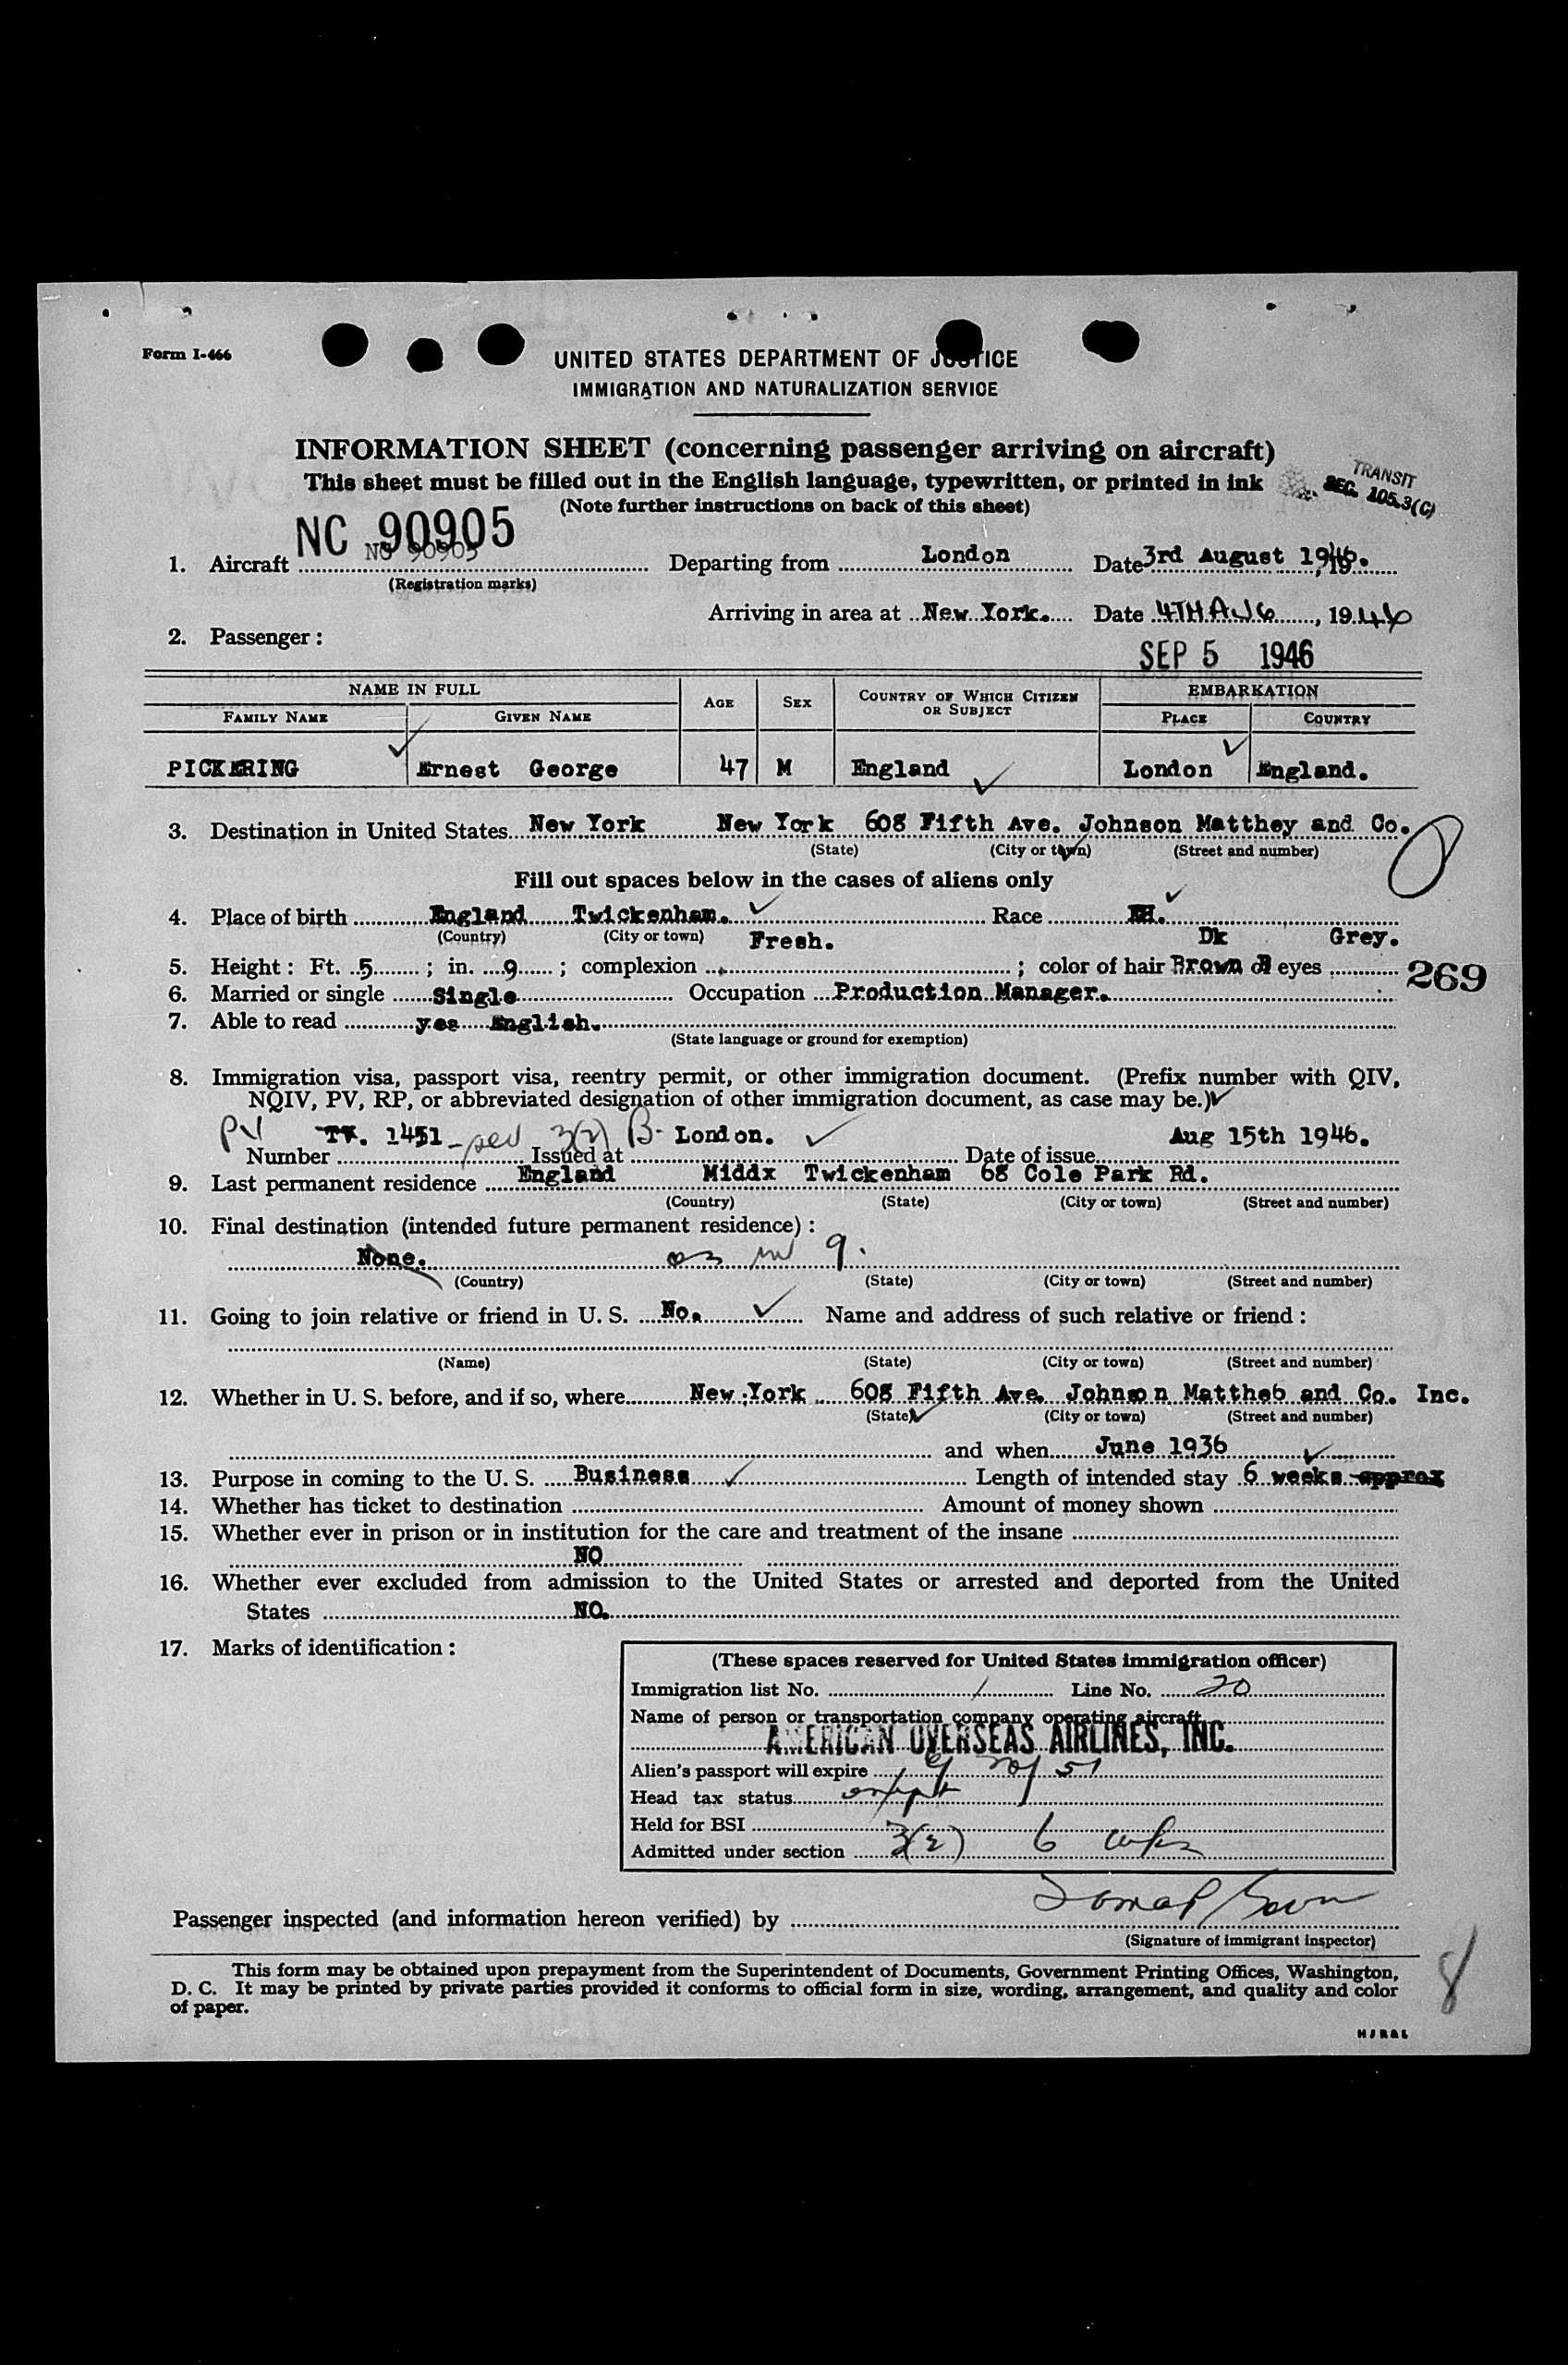 Form I-466
UNITED STATES DEPARTMENT OF JUSTICE
IMMIGRATION AND NATURALIZATION SERVICE
INFORMATION SHEET (concerning passenger arriving on aircraft)
This sheet must be filled out in the English language, typewritten, or printed in ink
(Note further instructions on back of this sheet)
TRANSIT
SEC. 105.3(C)
NC 90905
1. Aircraft NC 90905 Departing from London Date 3rd August 1946.
(Registration marks)
Arriving in area at New York. Date 4TH AUG, 1946
2. Passenger:
SEP 5 1946
NAME IN FULL AGE SEX COUNTRY OF WHICH CITIZEN OR SUBJECT EMBARKATION
FAMILY NAME GIVEN NAME PLACE COUNTRY
PICKERING Ernest George 47 M England London England.
3. Destination in United States New York New York 608 Fifth Ave. Johnson Matthey and Co.
(State) (City or town) (Street and number)
Fill out spaces below in the cases of aliens only
4. Place of birth England Twickenham. Race
(Country) (City or town) Fresh. Dk Grey.
5. Height: Ft. 5; in. 9; complexion; color of hair Brown eyes
269
6. Married or single Single Occupation Production Manager.
7. Able to read yes English.
(State language or ground for exemption)
8. Immigration visa, passport visa, reentry permit, or other immigration document. (Prefix number with QIV,
NQIV, PV, RP, or abbreviated designation of other immigration document, as case may be.)
PV TV. 1451 3(2) B- London. Aug 15th 1946.
Number Issued at Date of issue
9. Last permanent residence England Middx Twickenham 68 Cole Park Rd.
(Country) (State) (City or town) (Street and number)
10. Final destination (intended future permanent residence):
None. as in 9.
(Country) (State) (City or town) (Street and number)
11. Going to join relative or friend in U. S. No. Name and address of such relative or friend:
(Name) (State) (City or town) (Street and number)
12. Whether in U. S. before, and if so, where New York 608 Fifth Ave. Johnson Mattheb and Co. Inc.
(State) (City or town) (Street and number)
and when June 1936
13. Purpose in coming to the U. S. Business Length of intended stay 6 weeks approx
14. Whether has ticket to destination Amount of money shown
15. Whether ever in prison or in institution for the care and treatment of the insane
NO
16. Whether ever excluded from admission to the United States or arrested and deported from the United
States NO.
17. Marks of identification:
(These spaces reserved for United States immigration officer)
Immigration list No. 1 Line No. 20
Name of person or transportation company operating aircraft
AMERICAN OVERSEAS AIRLINES, INC.
Alien's passport will expire 51
Head tax status exempt
Held for BSI
Admitted under section 3(2) 6 wks
Passenger inspected (and information hereon verified) by
(Signature of immigrant inspector)
8
This form may be obtained upon prepayment from the Superintendent of Documents, Government Printing Offices, Washington,
D. C. It may be printed by private parties provided it conforms to official form in size, wording, arrangement, and quality and color
of paper.